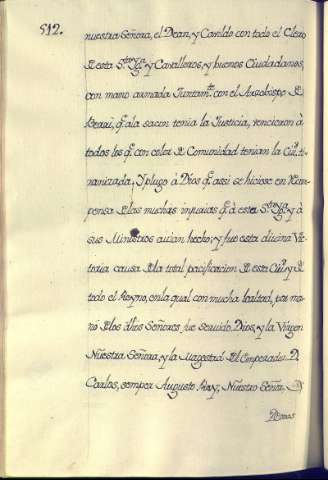 512.
nuestra Señora, el Dean, y Cavildo con todo el Clero
de esta Sta. Ygla. y Cavalleros, y buenos Ciudadanos,
con mano armada Juntamte. con el Arzobispo de
Barri, q. ala sacon tenia la Justicia, vencieron à
todos los q. con color de Comunidad tenian la Ciud.
tiranizada; Y plugo à Dios q. assi se hiciese en recom-
pensa de las muchas injurias q. à esta Sta. Ygla. y à
sus Ministros avian hecho; y fue esta divina Vic-
toria causa de la total pacificacion de esta Ciud. y de
todo el Reyno, en la qual con mucha lealtad, por ma-
no de los dhos Señores fue servido Dios, y la Virgen
Nuestra Señora, y la Magestad del Emperador D.
Carlos, semper Augusto Rey, Nuestro Señor. D